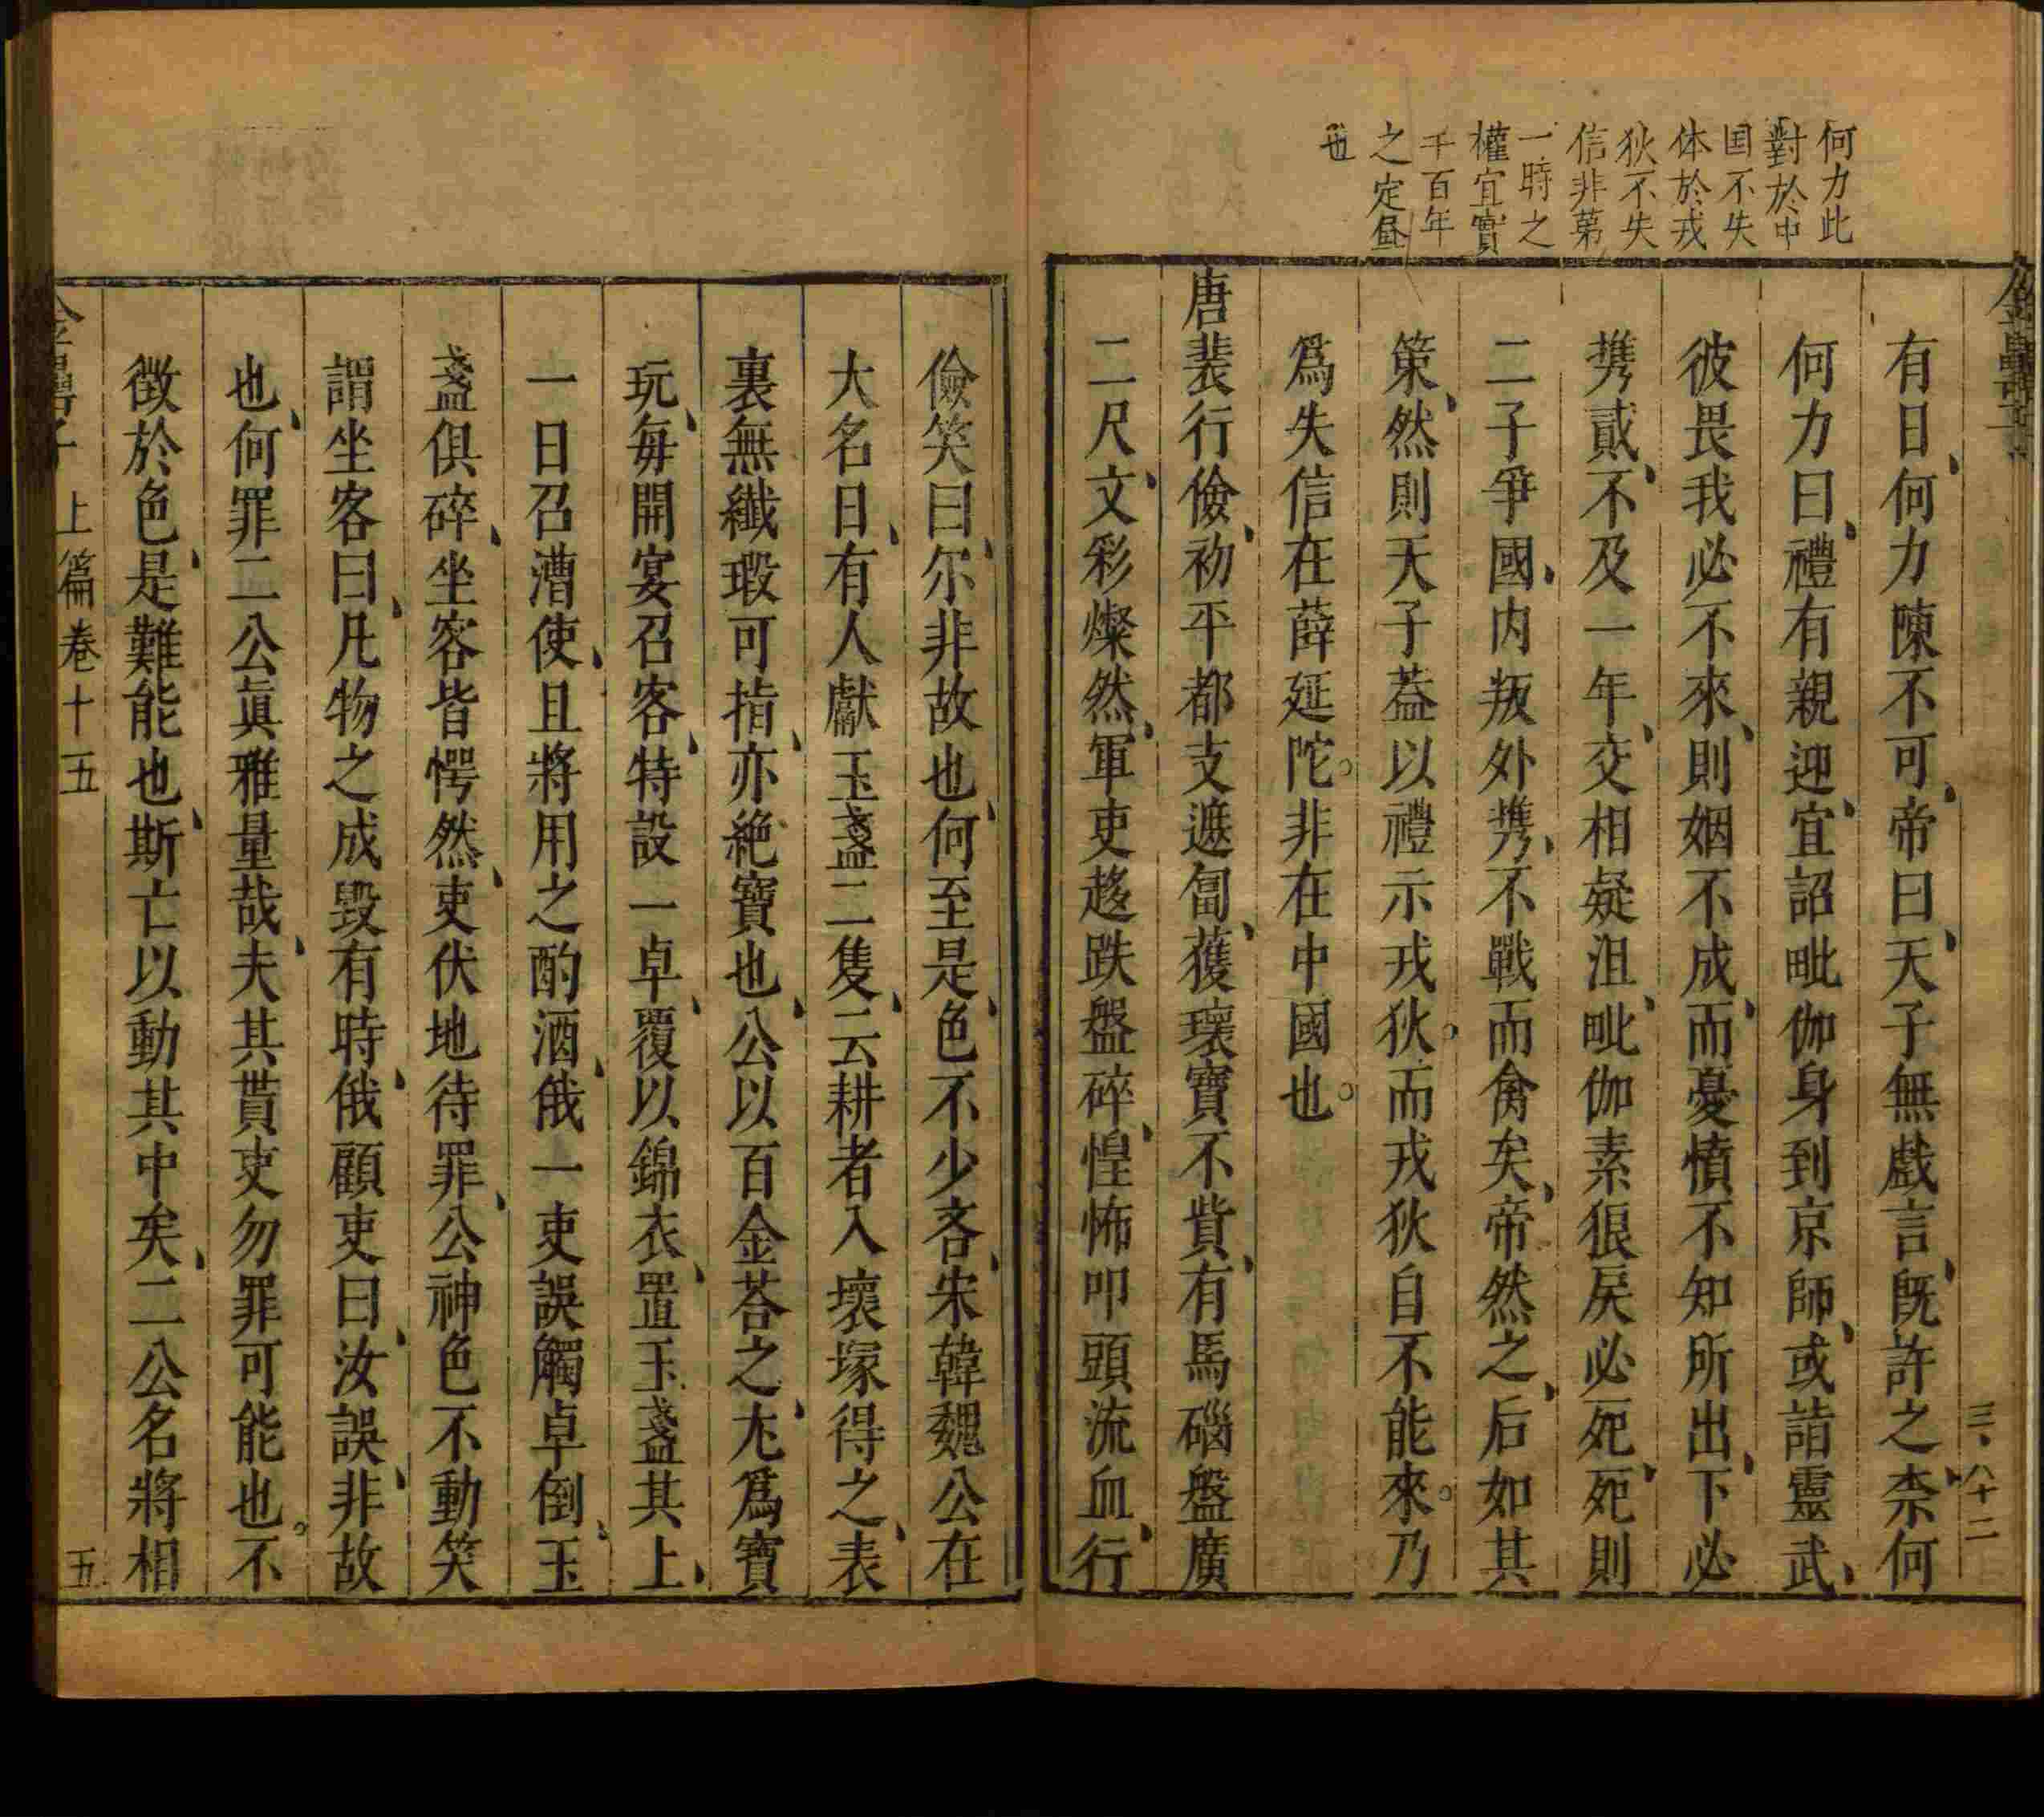 何力此
對於中
国不失
体於戎
狄不失
信非苐
一時之
權宜實
千百年
之定

也
有日何力陳不可帝曰天子無戲言旣許之柰何
何力曰禮有親迎宜詔毗伽身到京師或詣靈武
彼畏我必不來則姻不成而憂憤不知所出下必
携貳不及一年交相疑沮毗伽素狠戾必死死則
二子爭國内叛外携不戰而禽矣帝然之后如其
策然則天子葢以禮示戎狄而戎狄自不能來乃
爲失信在薛延陀非在中國也
唐裴行儉初平都支遮匐獲瓌寶不貲有馬碯盤廣
二尺文彩燦然軍吏趍跌盤碎惶怖叩頭流血行
三八十二
儉笑曰尔非故也何至是色不少吝宋韓魏公在
大名日有人獻玉盞二隻云耕者入壞塚得之表
裏無纖瑕可指亦絶寶也公以百金荅之尤爲寶
玩每開宴召客特設一卓覆以錦衣置玉盞其上
一日召漕使且將用之酌酒俄一吏誤觸卓倒玉
盞俱碎坐客皆愕然吏伏地待罪公神色不動笑
謂坐客曰凡物之成毀有時俄顧吏曰汝誤非故
也何罪二公眞雅量哉夫其貰吏勿罪可能也不
徴於色是難能也斯亡以動其中矣二公名將相
上篇卷十五
五